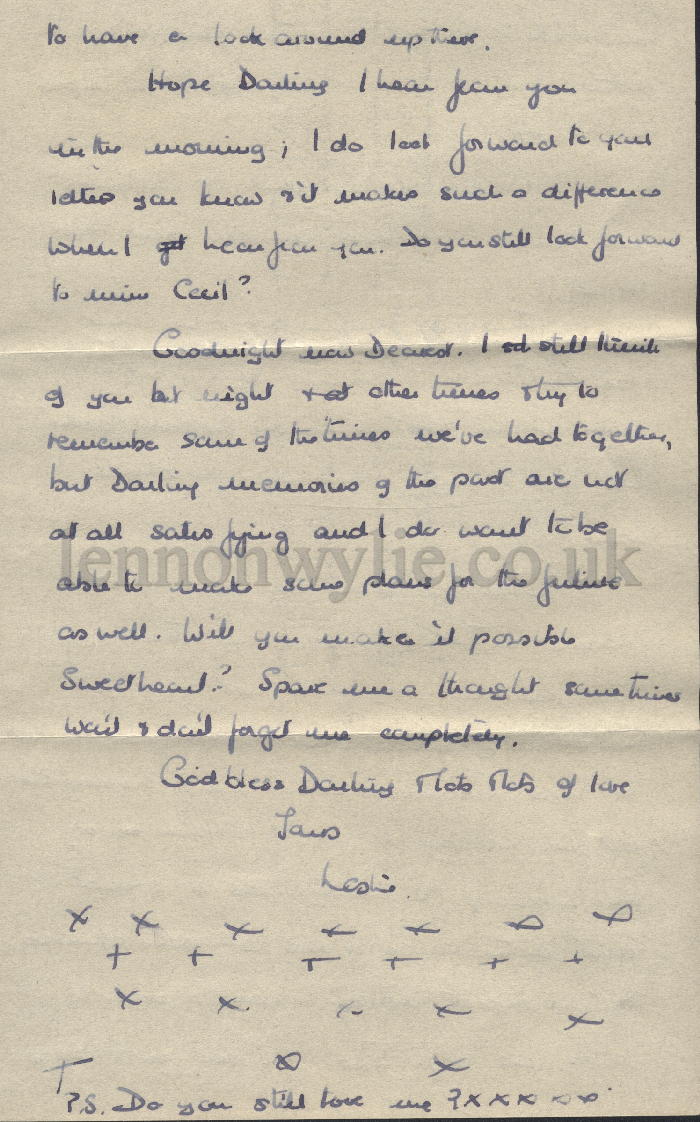 to have a look around up there.
Hope Darling I hear from you
in the morning; I do look forward to your
letters you know & it makes such a difference
when I get hear from you. Do you still look forward
to mine Cecil?
Goodnight now Dearest. I still think
of you last night & at other times & try to
remember some of the times we've had together,
but Darling memories of the past are not
at all satisfying and I do want to be
able to make some plans for the future
as well. Will you make it possible
Sweetheart? Spare me a thought sometimes
won't & don't forget me completely.
God bless Darling & lots & lots of love
Yours
Leslie.
x x x x x x x
+ + + + + +
x x x x x
x x
P.S. Do you still love me? x x x x x
lennonwylie.co.uk